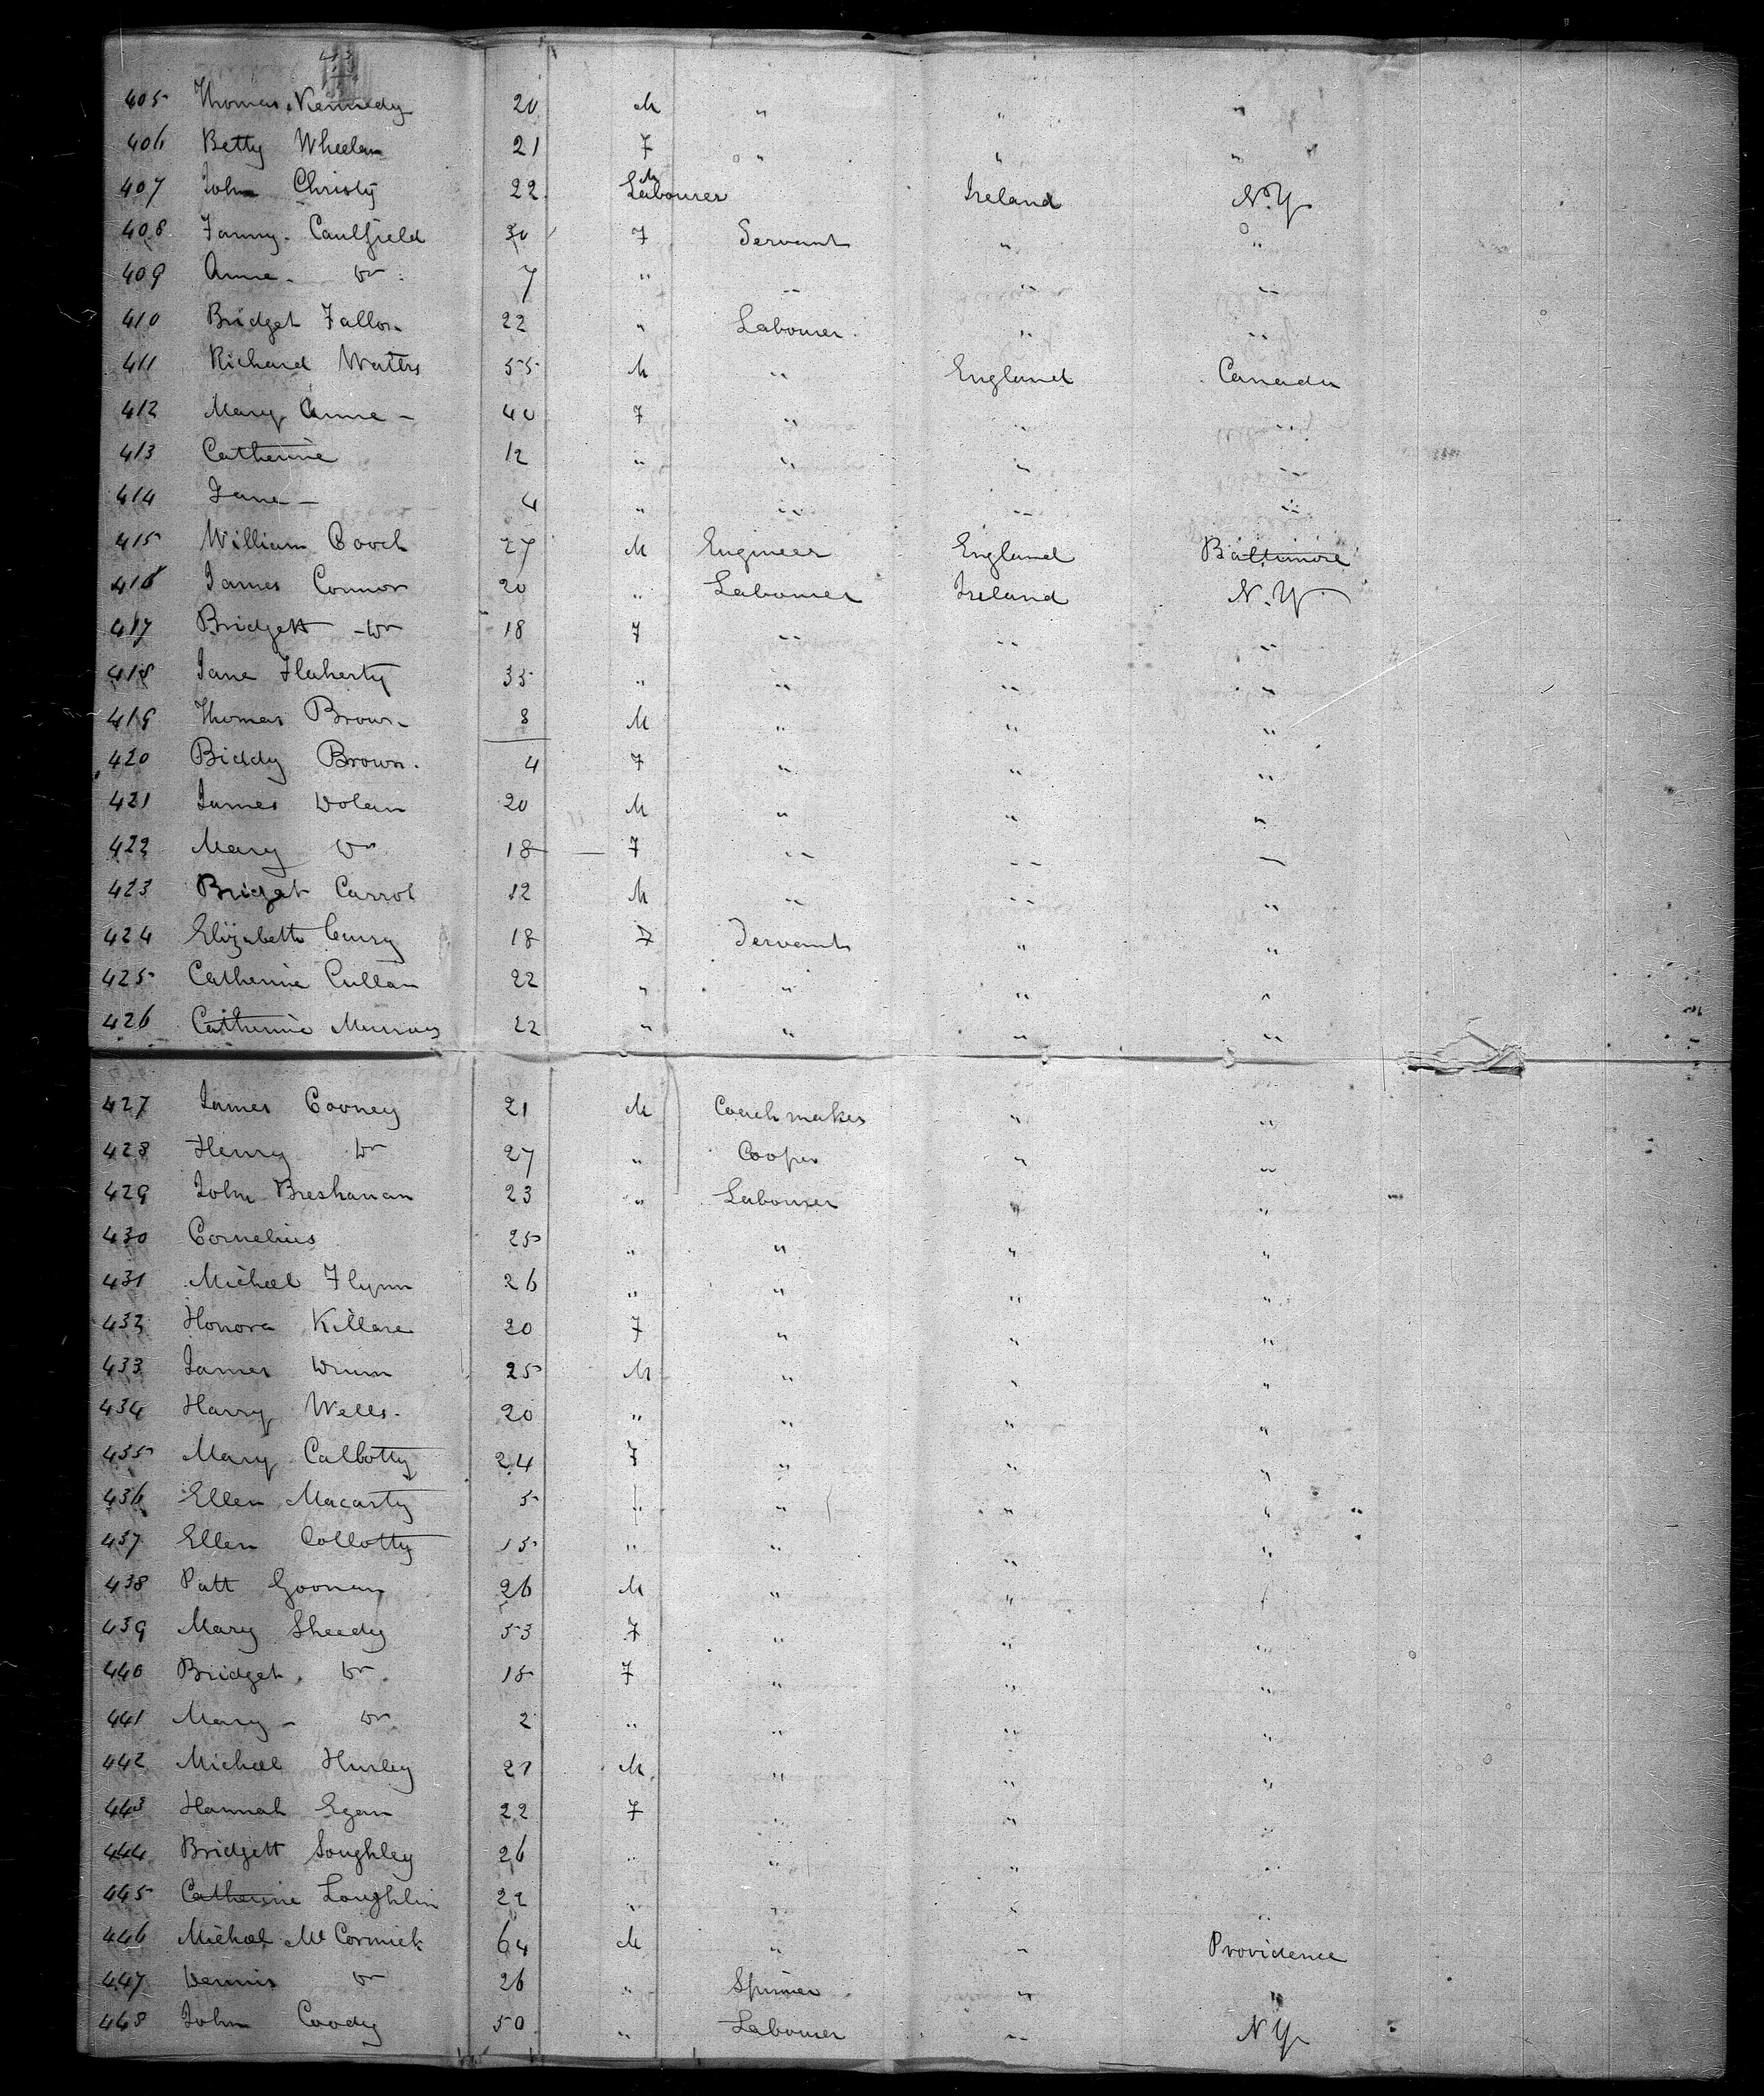 405 Thomas Kennedy 20 M " " "
406 Betty Wheelan 21 F " " "
407 John Christy 22 M Labourer Ireland N.Y
408 Fanny Caulfield 30 F Servant " "
409 Anne - Do 7 " " " "
410 Bridget Fallon 22 " Labourer " "
411 Richard Watters 55 M " England Canada
412 Mary Anne - 40 F " " "
413 Catherine 12 " " " "
414 Jane - 4 " " " "
415 William Gooch 27 M Engineer England Baltimore
416 James Connor 20 " Labourer Ireland N.Y
417 Bridgett - Do 18 F " " "
418 Jane Flaherty 35 " " " "
419 Thomas Brown 8 M " " "
420 Biddy Brown. 4 F " " "
421 James Dolan 20 M " " "
422 Mary Do 18 F " " "
423 Bridget Carrol 12 M " " "
424 Elizabeth 18 F Servant " "
425 Catherine Cullan 22 " " " "
426 Catherine Murray 22 " " " "
427 James Cooney 21 M Coachmaker " "
428 Henry Do 27 " Cooper " "
429 John Breshanan 23 " Labourer " "
430 Cornelius 25 " " " "
431 Michael Flynn 26 " " " "
432 Honora Killare 20 F " " "
433 James Drum 25 M " " "
434 Harry Wells. 20 " " " "
435 Mary Calbotty 24 F " " "
436 Ellen Macarty 5 " " " "
437 Ellen Collotty 15 " " " "
438 Patt Goonan 26 M " "
439 Mary Sheedy 53 F " " "
440 Bridget. Do. 18 F " " "
441 Mary - Do 2 " " " "
442 Michael Hurley 21 M " " "
443 Hannah Egan 22 F " " "
444 Bridgett Soughley 26 " " " "
445 Catherine Loughlin 22 " " " "
446 Michael McCormick 64 M " " Providence
447 Dennis Do 26 " Spinner " "
448 John Coody 50 " Labourer " N.Y